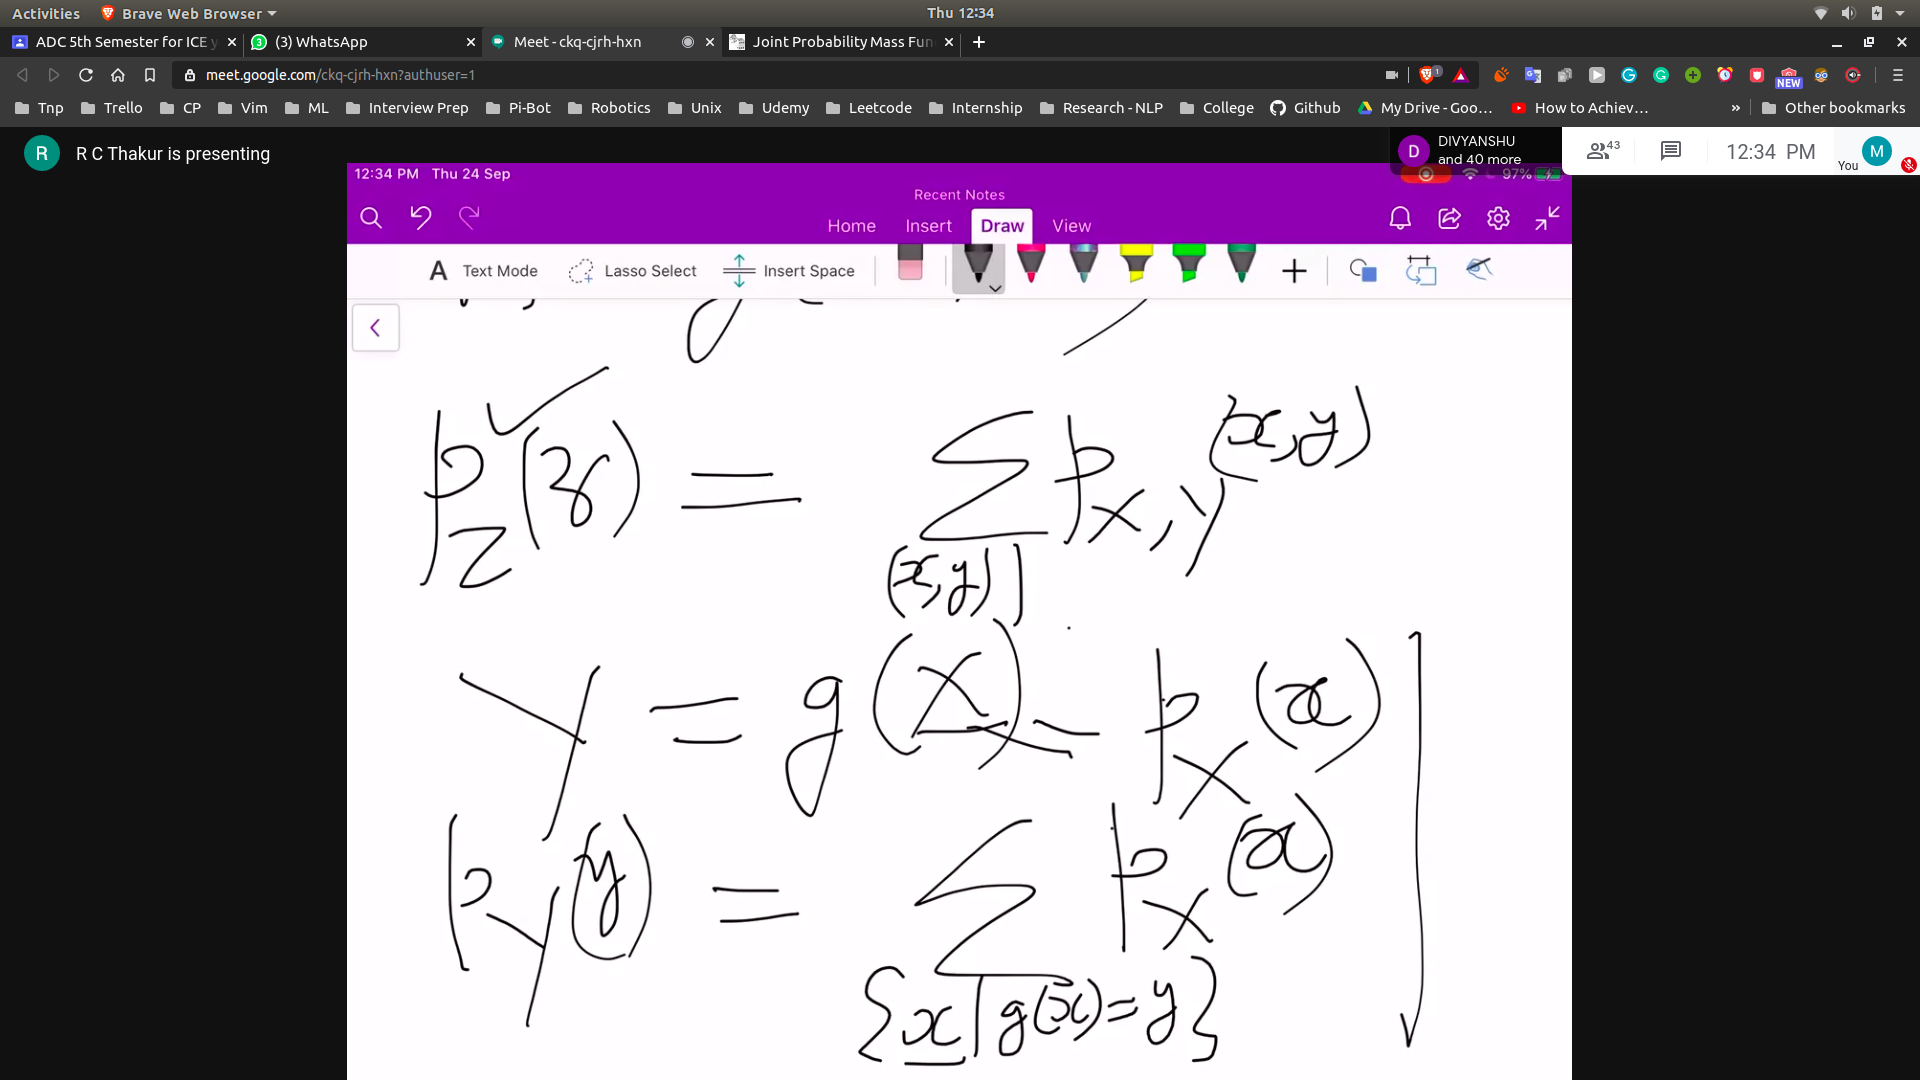 Activities Brave Web Browser Thu 12:34
ADC 5th Semester for ICE y (3) WhatsApp Meet - ckq-cjrh-hxn Joint Probability Mass Fun
meet.google.com/ckq-cjrh-hxn?authuser=1 1 NEW
Tnp Trello CP Vim ML Interview Prep Pi-Bot Robotics Unix Udemy Leetcode Internship Research - NLP College Github My Drive - Goo... How to Achiev... » Other bookmarks
R R C Thakur is presenting D DIVYANSHU and 40 more 43 12:34 PM You M
12:34 PM Thu 24 Sep 97%
Recent Notes
Home Insert Draw View
A Text Mode Lasso Select Insert Space
p_Z(z) = Σ p_X,Y(x,y)
(x,y)|
Y = g(X) p_X(x)
p_Y(y) = Σ p_X(x)
{x|g(x)=y}